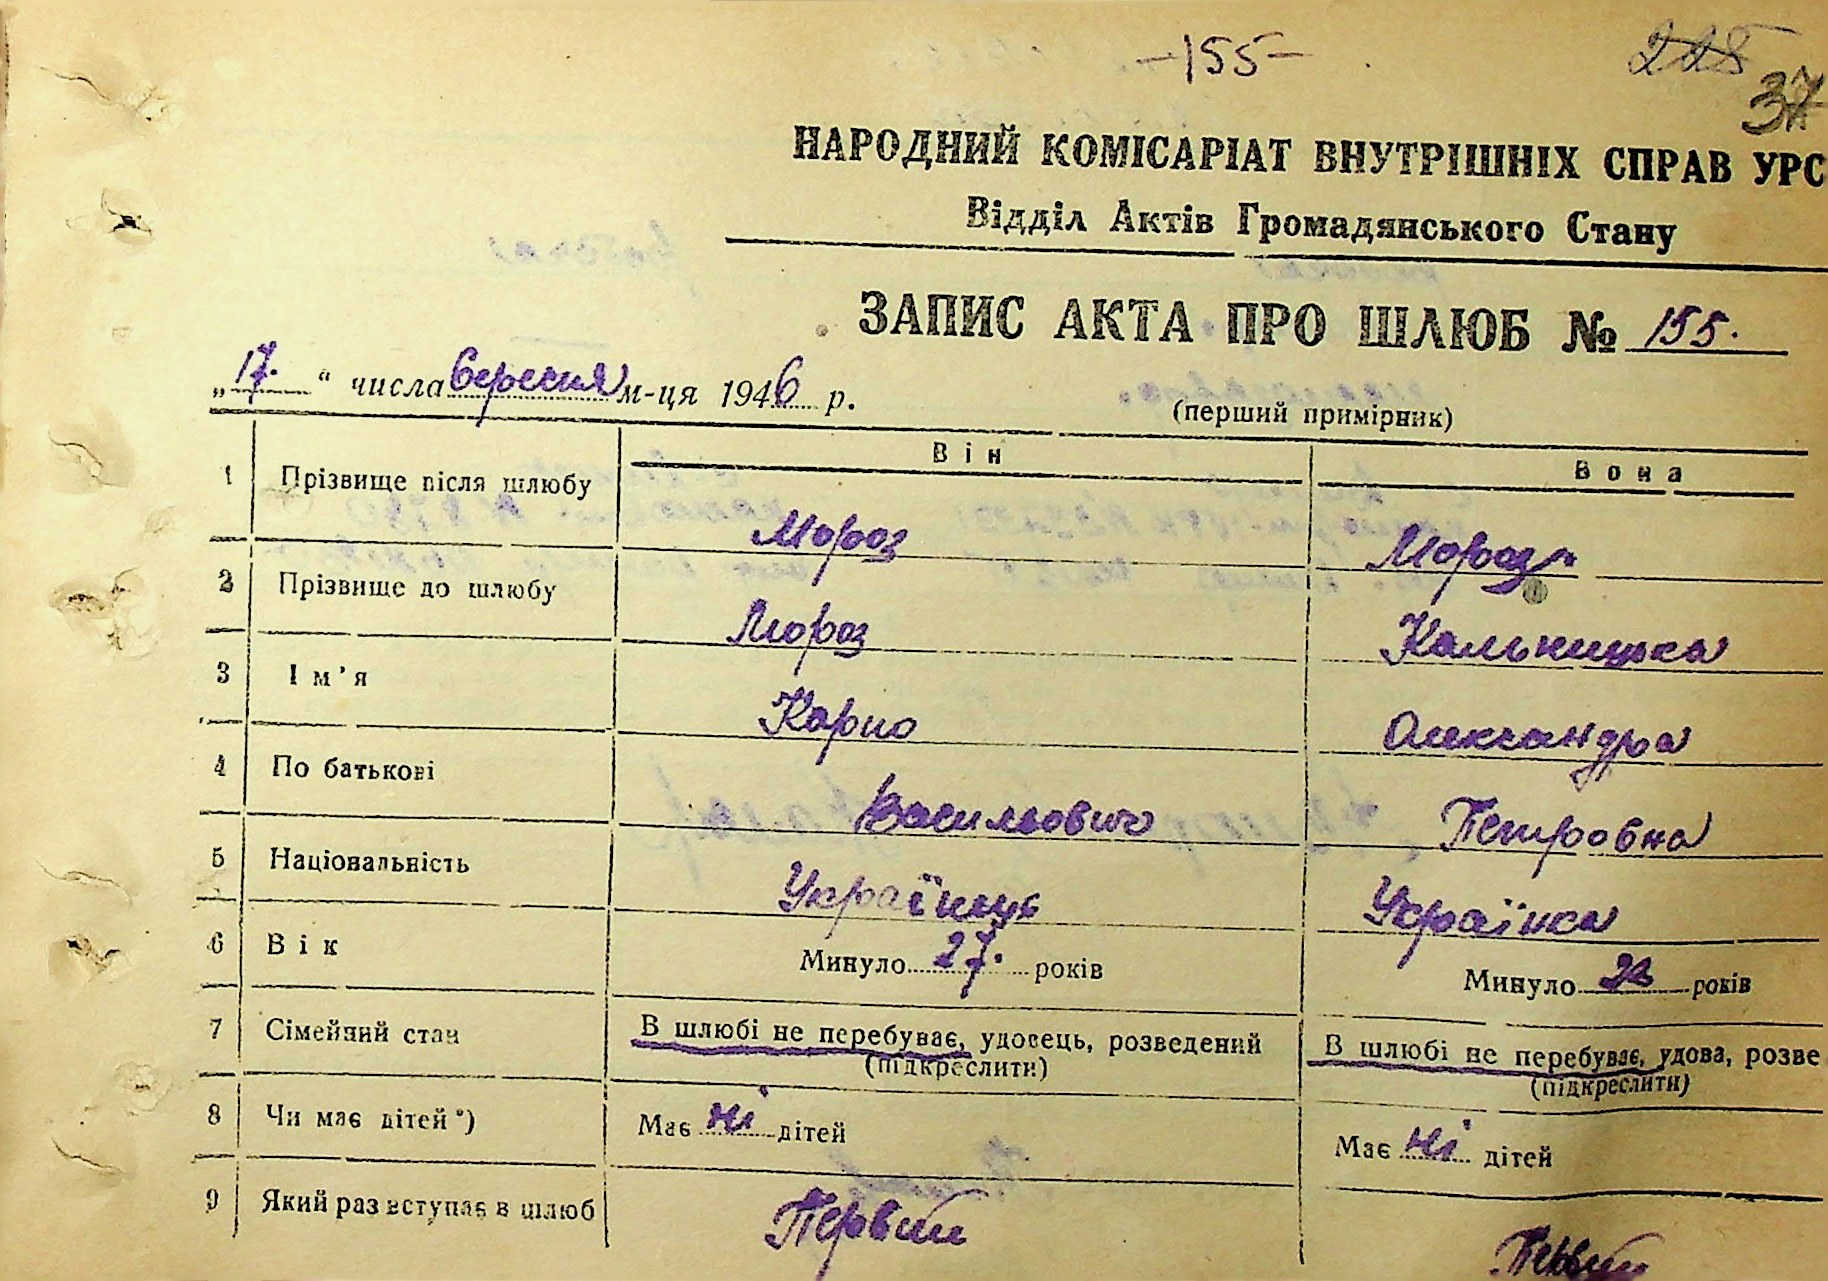 -155-
228
37
НАРОДНИЙ КОМІСАРІАТ ВНУТРІШНІХ СПРАВ УРС
Відділ Актів Громадянського Стану
ЗАПИС АКТА ПРО ШЛЮБ № 155.
„17.“ числа вересня м-ця 1946 р.
(перший примірник)
Він Вона
1 Прізвище після шлюбу Мороз Мороз
2 Прізвище до шлюбу Мороз Кальницька
3 Ім’я Карпо Олександра
4 По батькові Васильович Петровна
5 Національність Українець Українка
6 Вік Минуло 27. років Минуло 22 років
7 Сімейний стан В шлюбі не перебуває, удовець, розведений В шлюбі не перебуває, удова, розве
(підкреслити) (підкреслити)
8 Чи має дітей *) Має ні дітей Має ні дітей
9 Який раз вступає в шлюб Первий Первий